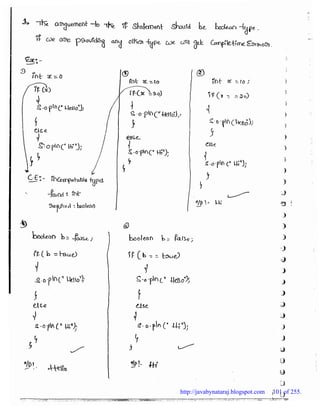 → The argument to the if statement should be boolean type.
if we are providing any other type we will get CompileTime Error.
Ex:-
int x=0
if(x)
{
S.o.pln("Hello");
}
else
{
S.o.pln("Hi");
}
}
C.E:- Incompatible types
found : int
required : boolean
①
int x=10
if(x=20)
{
S.o.pln("Hello");
}
else
{
S.o.pln("Hi");
}
}
②
int x=10;
if(x==20)
{
S.o.pln("Hello");
}
else
{
S.o.pln("Hi");
}
}
O/p:- Hi
boolean b=false;
if(b=true)
{
S.o.pln("Hello");
}
else
{
S.o.pln("Hi");
}
}
O/p:- Hello
boolean b=false;
if(b==true)
{
S.o.pln("Hello");
}
else
{
S.o.pln("Hi");
}
}
O/p:- Hi
http://javabynataraj.blogspot.com 101 of 255.